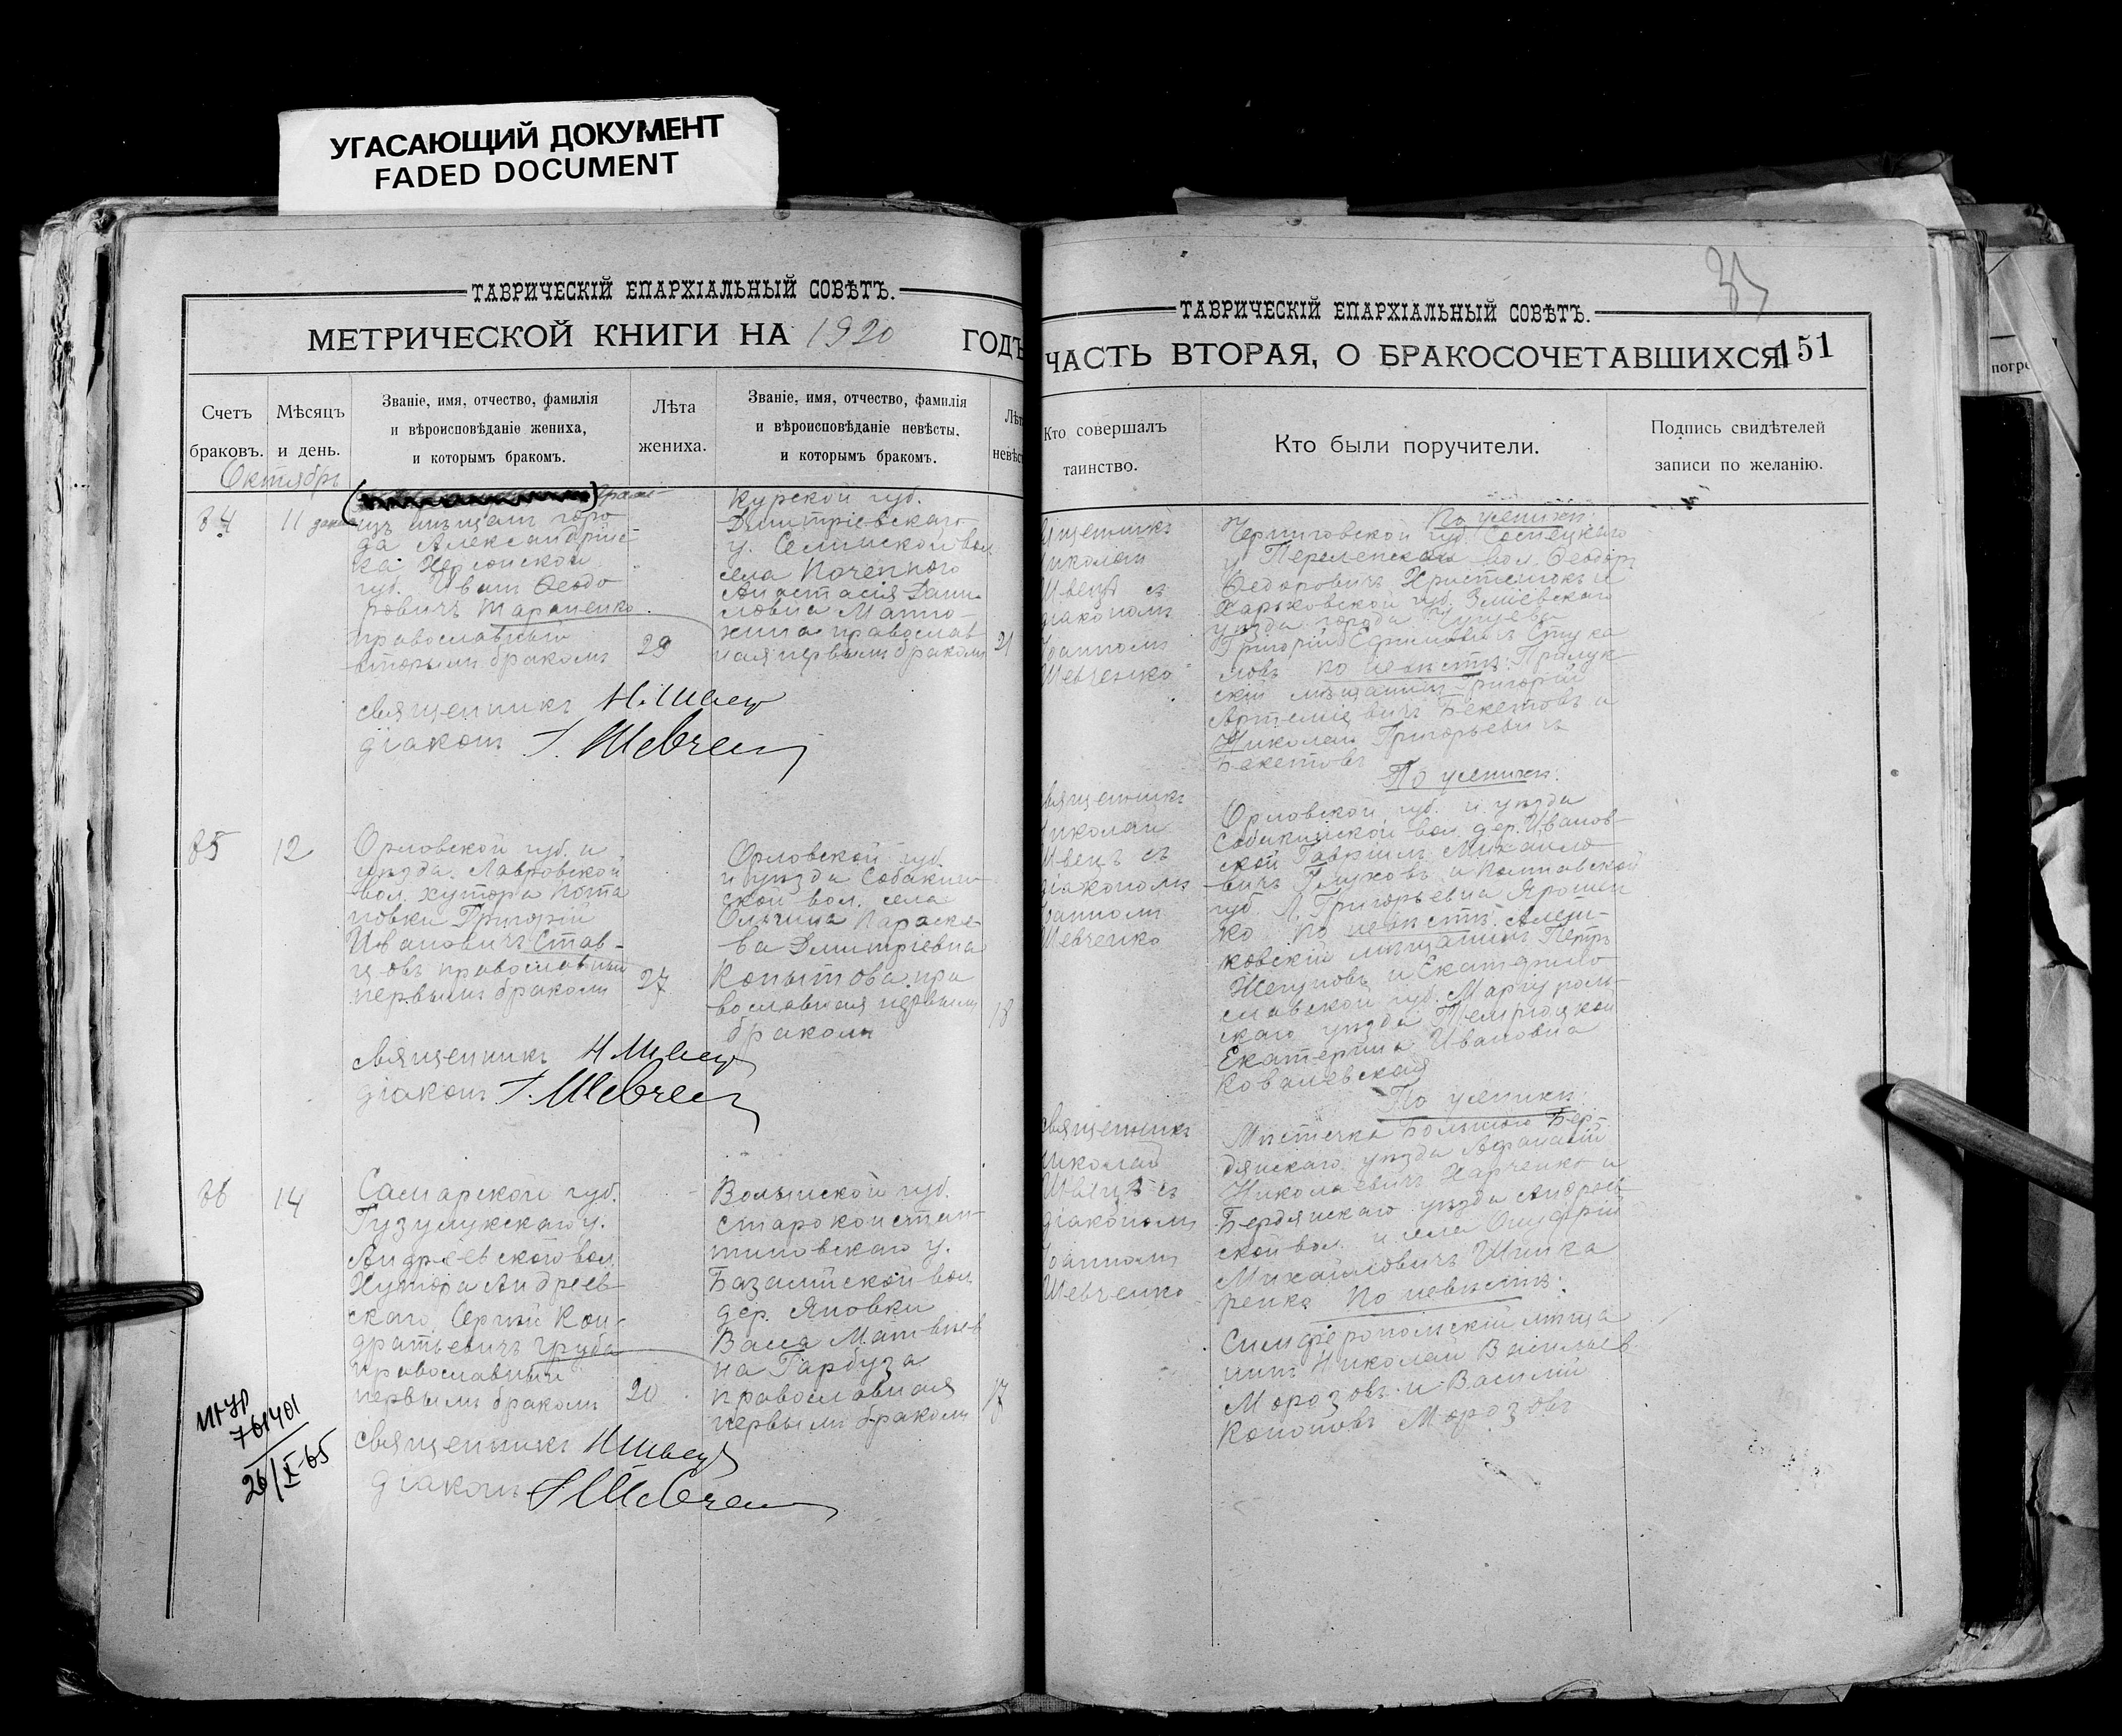 УГАСАЮЩИЙ ДОКУМЕНТ
FADED DOCUMENT
ТАВРИЧЕСКІЙ ЕПАРХІАЛЬНЫЙ СОВѢТЪ.
МЕТРИЧЕСКОЙ КНИГИ НА 1920 ГОДЪ
Счетъ браковъ.
Мѣсяцъ и день.
Званіе, имя, отчество, фамилія
и вѣроисповѣданіе жениха,
и которымъ бракомъ.
Лѣта
жениха.
Званіе, имя, отчество, фамилія
и вѣроисповѣданіе невѣсты,
и которымъ бракомъ.
Лѣт
невѣс
Октябрь
84
11
изъ мѣщанъ горо
да Александрійс-
ка Херсонской
губ. Иванъ Феодо
ровичъ Тараненко
православный
вторымъ бракомъ
29
Курской губ.
Дмитріевскаго
у. Селинской вол.
села Поченного
Анастасія Дани
ловна Матю
хина православ
ная первымъ бракомъ
21
священникъ Н. Швец
діаконъ І. Шевчен
85
12
Орловской губ. и
уѣзда. Лавровской
вол. хутора Пота
повки Григорій
Ивановичъ Став-
цовъ православный
первымъ бракомъ
27
Орловской губ.
и уѣзда Собакин
ской вол. села
Параске-
ва Дмитріевна
Копытова пра
вославная первымъ
бракомъ
18
священникъ Н Швец
діаконъ І. Шевчен
86
14
Самарской губ.
Бузулукскаго у.
Андреевской вол.
Хутора Андреев-
скаго, Сергѣй Кон-
дратьевичъ Груба
православный
первымъ бракомъ
20
Волынской губ.
Староконстан-
тиновскаго у.
Базалійской вол.
дер. Яновки
Васса Матвѣев
на Гарбуза
православная
первымъ бракомъ
17
священникъ Н Швец
діаконъ І Шевчен
761401
26/X-65
ТАВРИЧЕСКІЙ ЕПАРХІАЛЬНЫЙ СОВѢТЪ.
ЧАСТЬ ВТОРАЯ, О БРАКОСОЧЕТАВШИХСЯ
151
Кто совершалъ
таинство.
Кто были поручители.
Подпись свидѣтелей
записи по желанію.
вященникъ
иколай
Швецъ съ
діакономъ
Іоанномъ
Шевченко
По женихи:
Черниговской губ. Сосницкаго
у. вол. Феодоръ
Федоровичъ и
Харьковской губ. Зміевскаго
уѣзда города Чугуева
Григорій Ефимовичъ Стука
ловъ по невѣстѣ: Прилук-
скій мѣщанинъ Григорій
Артеміевичъ Бекетовъ и
Николай Григорьевичъ
Бекетовъ
вященникъ
иколай
Швецъ съ
діакономъ
Іоанномъ
Шевченко
По женихи:
Орловской губ. и уѣзда
Собакинской вол. дер. Иванов-
ской Гавріилъ Михайло-
вичъ Глуховъ и Полтавской
губ. Григорьевна Ярошен
ко По невѣстѣ: Алеш-
ковскій мѣщанинъ Петръ
Жегуновъ и Екатерино
славской губ. Маріуполь-
скаго уѣзда Темрюцкой
Екатерина Ивановна
Ковалевская
священникъ
иколай
Швецъ съ
діакономъ
Іоанномъ
Шевченко
По женихи:
Мѣстечка Большого Бер-
дянскаго уѣзда Афанасій
Николаевичъ Харченко и
Бердянскаго уѣзда Андреев
ской вол. и села Онуфрій
Михайловичъ Шинка
ренко По невѣстѣ:
Симферопольскій мѣща
нинъ Николай Васильев
Морозовъ и Василій
Кононовъ Морозовъ